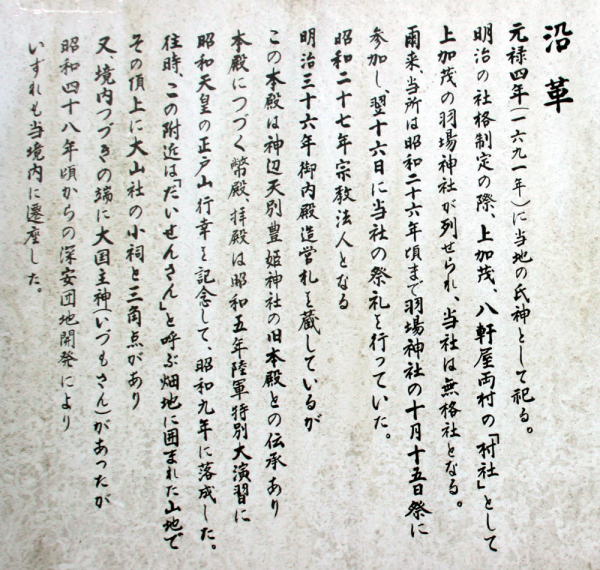 沿革
元禄四年(一六九一年)に当地の氏神として祀る。
明治の社格制定の際、上加茂、八軒屋両村の「村社」として
上加茂の羽場神社が列せられ、当社は無格社となる。
爾来、当所は昭和二十六年頃まで羽場神社の十月十五日祭に
参加し、翌十六日に当社の祭礼を行っていた。
昭和二十七年宗教法人となる
明治三十六年御内殿造営札を蔵しているが
この本殿は神辺天別豊姫神社の旧本殿との伝承あり
本殿につづく幣殿、拝殿は昭和五年陸軍特別大演習に
昭和天皇の正戸山行幸を記念して、昭和九年に落成した。
往時、この附近は「だいせんさん」と呼ぶ畑地に囲まれた山地で
その頂上に大山社の小祠と三角点があり
又、境内つづきの端に大国主神(いづもさん)があったが
昭和四十八年頃からの深安団地開発により
いずれも当境内に遷座した。